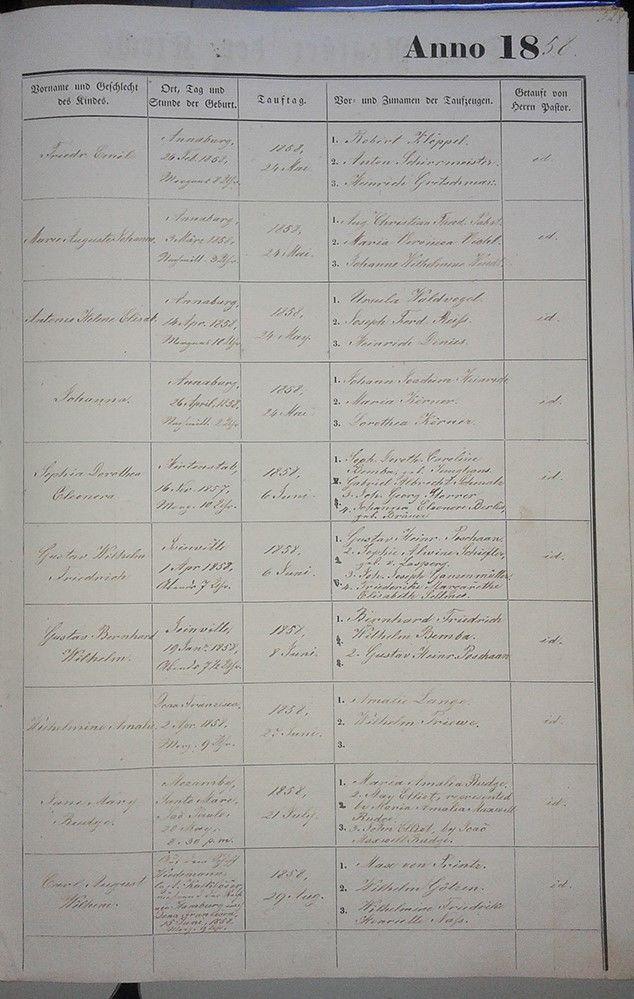 Anno 1858.
Vorname und Geschlecht
des Kindes.
Ort, Tag und
Stunde der Geburt.
Tauftag.
Vor- und Zunamen der Taufzeugen.
Getauft von
Herrn Pastor.
Friedr Emil
Annaburg,
26 Feb. 1858,
Morgens 8 Uhr.
1858,
24 Mai
1. Robert Klöppel.
2. Anton Schirrmeister.
3. Heinrich Gretschmar.
id.
Marie Auguste Johanna
Annaburg,
3 März 1858,
Nachmitt. 3 Uhr.
1858,
24 Mai.
1. Aug. Christian Ferd. Pabst.
2. Maria Veronica
3. Johanne Wilhelmine
id.
Antonie Helene Elisab.
Annaburg,
14 Apr. 1858,
Morgens 10 Uhr.
1858,
24 May.
1. Ursula Waldvogel.
2. Joseph Ferd. Reiss.
3. Heinrich
id.
Johanna.
Annaburg,
26 April, 1858,
Nachmitt. 2 Uhr.
1858,
24 Mai
1. Johann Joachim Heinrich
2. Maria Körner.
3. Dorothea Körner.
id.
Sophia Dorothea
Eleonora.
16 Nov. 1857,
Morg. 10 Uhr.
1858,
6 Juni.
1. Soph. Doroth. Caroline
Bemba, geb.
2. Gabriel Albrecht Schmalz
3. Joh. Georg
4. Johanna Eleonore
geb.
id.
Gustav Wilhelm
Friedrich
Joinville
1 Apr. 1858,
Abends 7 Uhr.
1858,
6 Juni.
1. Gustav Heinr. Poschaan.
2. Sophie Alwine
geb. v. Lasperg.
3. Joh. Joseph Ganzenmüller
4. Friedericke Margarethe
Elisabeth
id.
Gustav Bernhard
Wilhelm.
Joinville,
19 Jan. 1858,
Abends 7½ Uhr.
1858,
8 Juni.
1. Bernhard Friedrich
Wilhelm Bemba.
2. Gustav Heinr. Poschaan
id.
Wilhelmine Amalie
Dona Francisca,
2 Apr. 1858.
Morg. 9 Uhr.
1858,
27 Juni.
1. Amalie Lange.
2. Wilhelm Friewe.
3.
id.
Jane Mary
Rudge.
Santo
São Paulo
20 May,
8.30 p.m.
1858,
21 July.
1. Maria Amalia Rudge.
2. May Elliot, represented
by Maria Amalia Maxwell
Rudge.
3. John Elliot, by João
Maxwell Rudge.
id.
Carl August
Wilhelm.
Auf dem Schiff
von Hamburg nach
Dona Francisca,
15 Juni, 1858
Morg. 9 Uhr.
1858
29 Aug.
1. Max von Printz.
2. Wilhelm Götzen.
3. Wilhelmine Friedrike
Henriette Nass.
id.